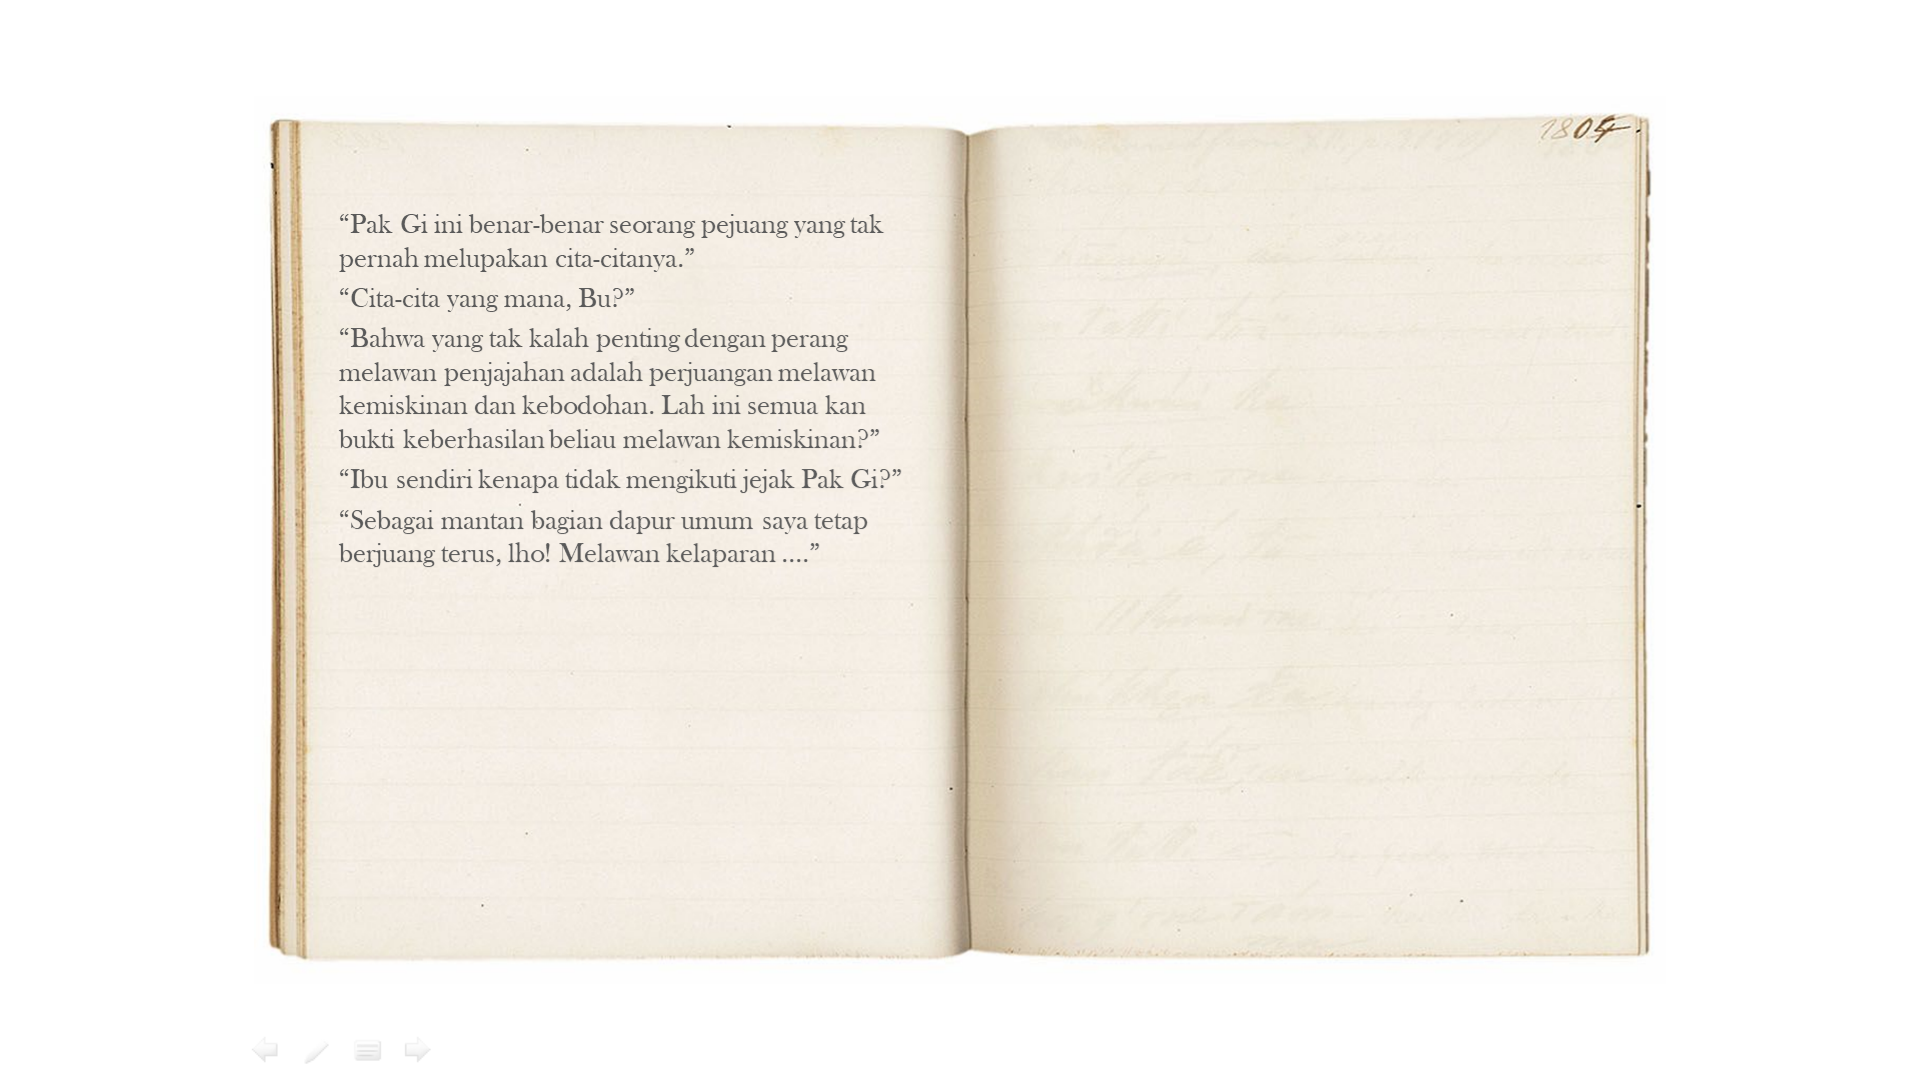 “Pak Gi ini benar-benar seorang pejuang yang tak
pernah melupakan cita-citanya.”
“Cita-cita yang mana, Bu?”
“Bahwa yang tak kalah penting dengan perang
melawan penjajahan adalah perjuangan melawan
kemiskinan dan kebodohan. Lah ini semua kan
bukti keberhasilan beliau melawan kemiskinan?”
“Ibu sendiri kenapa tidak mengikuti jejak Pak Gi?”
“Sebagai mantan bagian dapur umum saya tetap
berjuang terus, lho! Melawan kelaparan ....”
1804